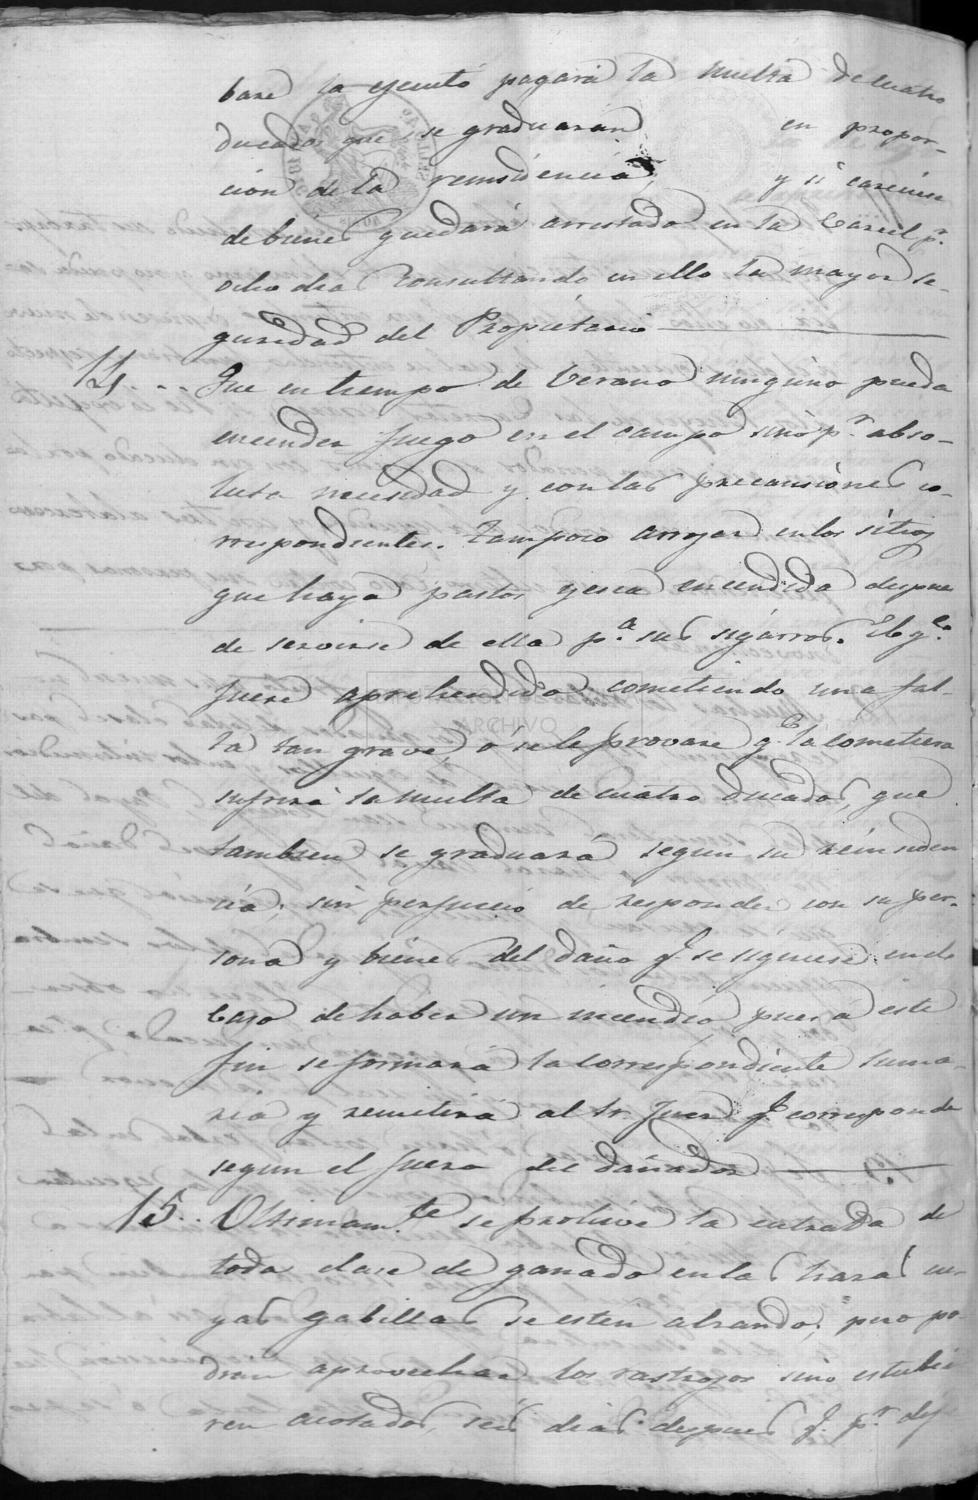 base la ejecutó pagará la multa de cuatro
ducados que se graduarán en propor-
cion de la reinsidencia, y si carecieren
de bienes quedará arrestado en la Carcel pr.
ocho dias consultando en ello la mayor se-
guridad del Propietario
14... Que en tiempo de Verano ninguno pueda
encender fuego en el campo sino pr. abso-
luta necesidad y con las precausiones co-
rrespondientes. Tampoco arrojar en los sitios
que haya pastos yesca encendida despues
de servirse de ella pa. sus sigarros. El qe.
fuere aprehendido cometiendo una fal-
ta tan grave, ó se le provare qe. la cometiera
sufrirá la multa de cuatro ducados, que
tambien se graduará segun su reinsiden
cia; sin perjuicio de responder con su per-
sona y bienes del daño q. se siguiese en el
caso de haber un incendio, pues á este
fin se formará la correspondiente suma-
ria y remitirá al Sr. Juez q. corresponda
segun el fuero del dañador
15.. Ultimamte. se prohive la entrada de
toda clase de ganado en las hazas cu-
yas gabillas se esten alzando; pero po-
drán aprovechar los rastrojos sino estubie
ren acotados, seis dias despues q. pr. des
ARCHIVO